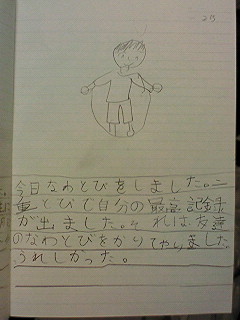 今日なわとびをしました。二
重とびで自分の最高記録
が出ました。それは友達
のなわとびをかりてやりました。
うれしかった。